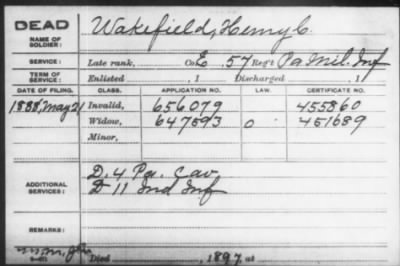 DEAD
NAME OF SOLDIER:
Wakefield, Henry C.
SERVICE:
Late rank, Co. E, 57 Reg't Pa Mil. Inf
TERM OF SERVICE:
Enlisted , 1 Discharged , 1
DATE OF FILING. CLASS. APPLICATION NO. LAW. CERTIFICATE NO.
1888, May 21 Invalid, 656079 455860
Widow, 647593 O 451689
Minor,
ADDITIONAL SERVICES:
D. 4 Pa. Cav.
D 11 Ind Inf
REMARKS:
Died , 1897, at